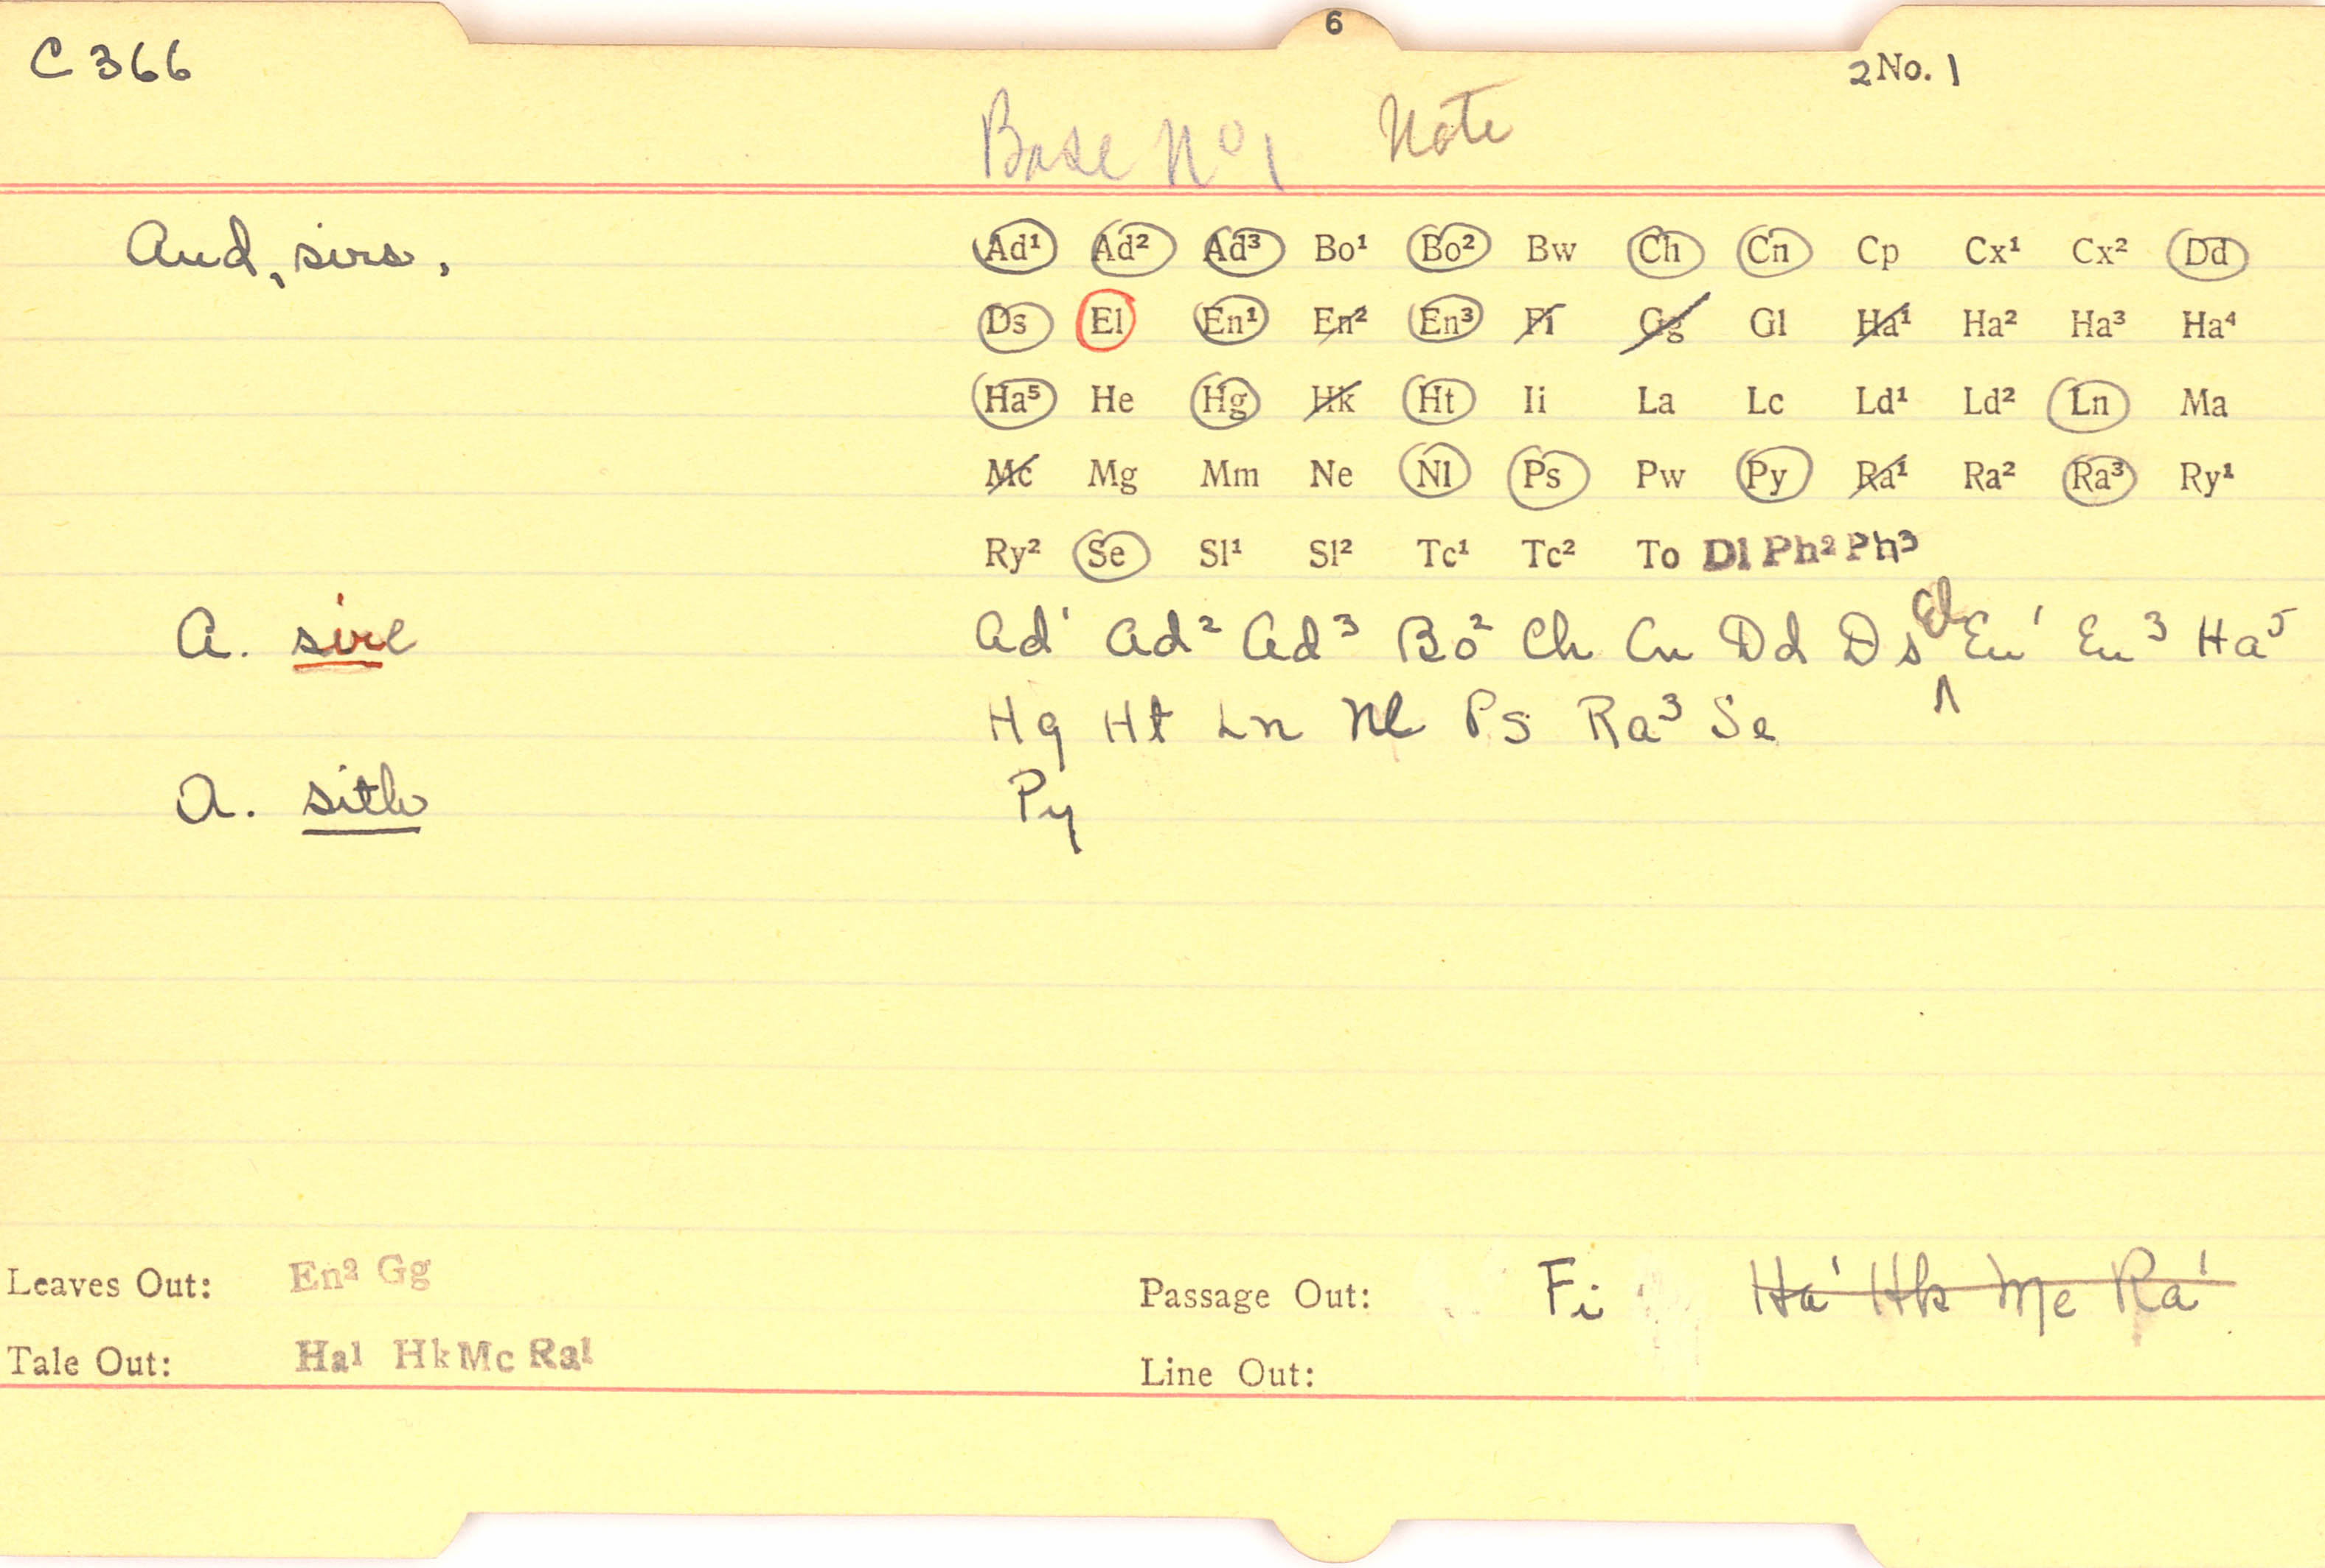 6
C 366
2 No. 1
Base No 1 Note
And, sirs,
Ad¹ Ad² Ad³ Bo¹ Bo² Bw Ch Cn Cp Cx¹ Cx² Dd
Ds El En¹ En² En³ Fi Gg Gl Ha¹ Ha² Ha³ Ha⁴
Ha⁵ He Hg Hk Ht Ii La Lc Ld¹ Ld² Ln Ma
Mc Mg Mm Ne Nl Ps Pw Py Ra¹ Ra² Ra³ Ry¹
Ry² Se Sl¹ Sl² Tc¹ Tc² To Dl Ph² Ph³
A. sire Ad¹ Ad² Ad³ Bo² Ch Cn Dd Ds El En¹ En³ Ha⁵
Hg Ht Ln Nl Ps Ra³ Se
A. sith Py
Leaves Out: En² Gg
Passage Out: Fi Ha¹ Hk Mc Ra¹
Tale Out: Ha¹ Hk Mc Ra¹
Line Out: